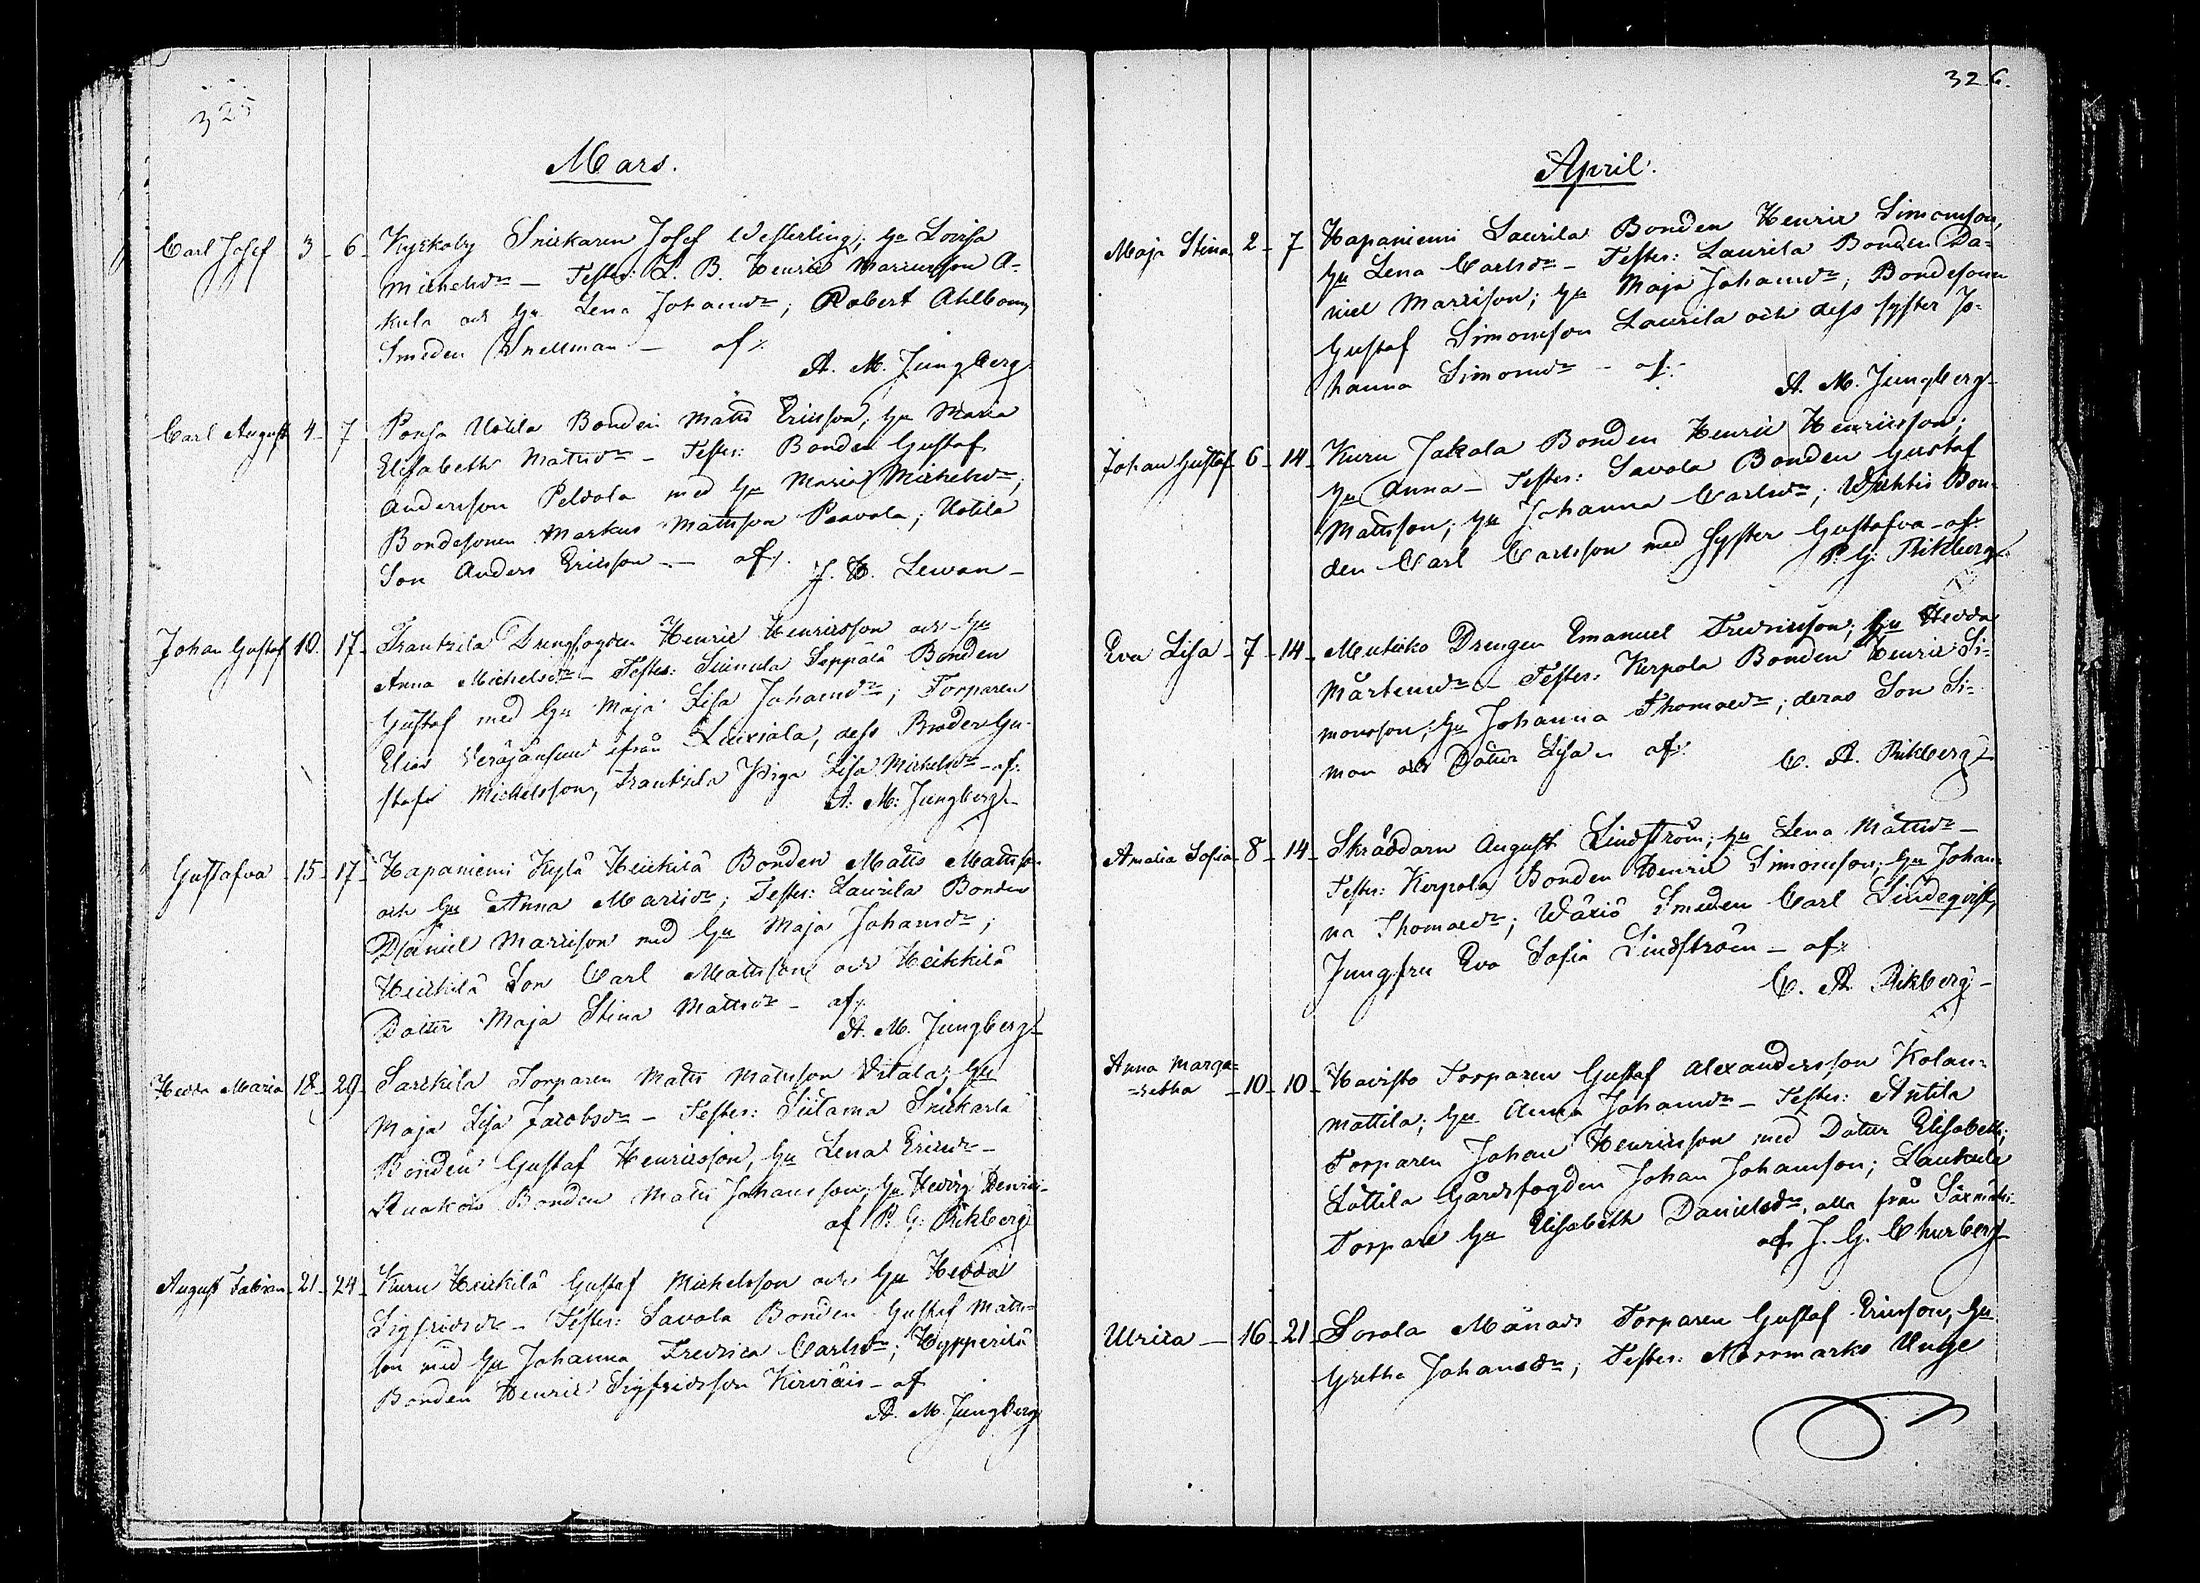 325
Mars.
Carl Josef 3 - 6 - Kyrkoby Snickaren Josef Westerling; hu Lovisa
Michelsdr - Testes: L. B. Henric Maria son A-
kula och hu Lena Johansdr; Robert Ahlbom,
Smeden Snellman - af
A. M. Jungberg
Carl August 4 - 7 Ponsa Uotila Bonden Matts Ericsson; hu Maria
Elisabeth Mattsdr - Testes: Bonden Gustaf
Andersson Peldola med hu Maria Michelsdr;
Bondesonen Markus Mattsson Paavola; Uotila
Son Anders Ericsson - af
J. H. Lewan -
Johan Gustaf 10 - 17 - Frantsila Drengfogden Henric Henricsson och hu
Anna Michelsdr - Testes: Sinula Seppälä Bonden
Gustaf med hu Maja Lisa Johansdr; Torparen
Elias ifrån Lauriala, dess Broder Gu-
staf Michelsson, Frantsila Piga Lisa Michelsdr - af
A. M. Jungberg
Gustafva - 15 - 17 - Hapaniemi Kylä Heickilä Bonden Matts Mattsson
och hu Anna Maria dr; Testes: Laurila Bonden
Daniel Marcisson med hu Maja Johansdr;
Heickilä Son Carl Mattsson och Heikkilä
Dotter Maja Stina Mattsdr - af
A. M. Jungberg
Hedda Maria 18 - 29 - Sarckila Torparen Matts Mattsson Vitala; hu
Maja Lisa Jacobsdr - Testes: Siitama Snickarla
Bonden Gustaf Henricsson, hu Lena Ericsdr -
Bonden Matts Johansson, hu Hedvig Henric-
af P. G. Rikberg
August Fabian - 21 - 24 - Kuru Heickilä Gustaf Michelsson och hu Hedda
Sigfridsdr - Testes: Savola Bonden Gustaf Matts-
son med hu Johanna Fredrica Carlsdr; Hypperilä
Bonden Henric Sigfridsson - af
A. M. Jungberg
326.
April.
Maja Stina 2 - 7 Hapaniemi Laurila Bonden Henric Simonsson,
hu Lena Carlsdr - Testes: Laurila Bonden Da-
niel Marcisson; hu Maja Johansdr; Bondesonen
Gustaf Simonsson Laurila och dess syster Jo-
hanna Simonsdr - af
A. M. Jungberg
Johan Gustaf 6 - 14 - Kuru Jakola Bonden Henric Henricsson;
hu Anna - Testes: Savola Bonden Gustaf
Mattsson; hu Johanna Carlsdr; Bon-
den Carl Carlsson med syster Gustafva - af
P. G. Rikberg
Eva Lisa - 7 - 14 - Mutikko Drengen Emanuel Fredricsson; hu Hedda
Mårtensdr - Testes: Kerpola Bonden Henric Si-
monsson; hu Johanna Thomasdr; deras Son Si-
mon och Dotter Lisa - af
C. A. Rikberg
Amalia Sofia 8 - 14 - Skräddarn August Lindström; hu Lena Mattsdr -
Testes: Kerpola Bonden Henric Simonsson; hu Johan-
na Thomasdr; Wäxiö Smeden Carl Lindeqvist,
Jungfru Eva Sofia Lindström - af
C. A. Rikberg -
Anna Marga-
-retha - 10 - 10 - Havisto Torparen Gustaf Alexandersson Kolan-
mattila; hu Anna Johansdr - Testes: Antila
Torparen Johan Henricsson med Dotter Elisabeth;
Lottila Gårdsfogden Johan Johansson; Laukula
Torpare hu Elisabeth Danielsdr, alla från Säxmäki.
af J. G. Churberg
Ulrica - 16 - 21 - Sorola Torparen Gustaf Ericsson, hu
Gretha Johansdr; Testes: Norrmarks Unge